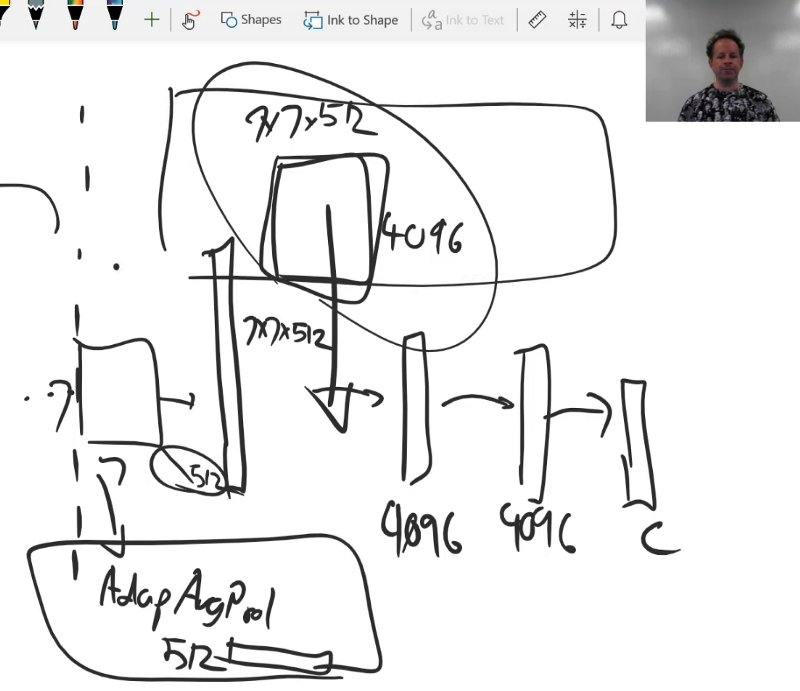 Shapes
Ink to Shape
Ink to Text
7x7x512
4096
7x7x512
7
512
7
4096
4096
C
AdapAvgPool
512